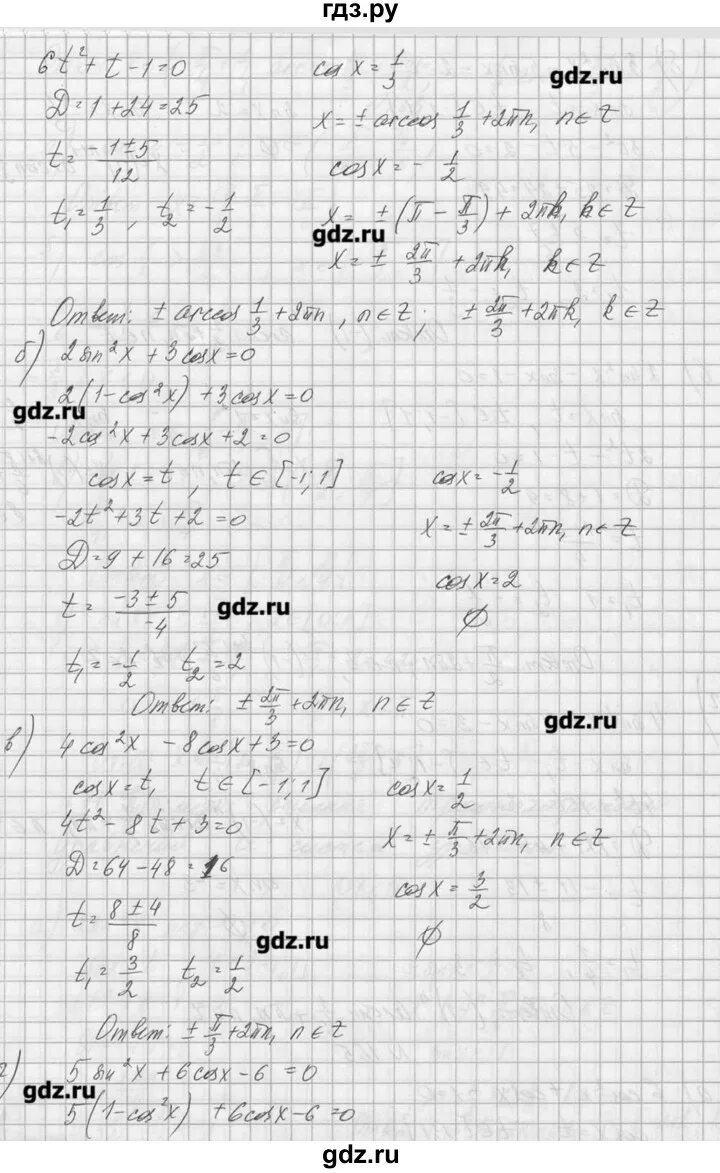 гдз.ру
6t² + t - 1 = 0
D = 1 + 24 = 25
t = (-1 ± 5)/12
t₁ = 1/3, t₂ = -1/2
cos x = 1/3
x = ± arccos 1/3 + 2πn, n ∈ Z
cos x = - 1/2
x = ± (π - π/3) + 2πk, k ∈ Z
x = ± 2π/3 + 2πk, k ∈ Z
gdz.ru
gdz.ru
Ответ: ± arccos 1/3 + 2πn, n ∈ Z; ± 2π/3 + 2πk, k ∈ Z
б) 2 sin²x + 3 cosx = 0
2(1 - cos²x) + 3 cosx = 0
gdz.ru
-2cos²x + 3cosx + 2 = 0
cosx = t, t ∈ [-1; 1]
-2t² + 3t + 2 = 0
D = 9 + 16 = 25
t = (-3 ± 5)/-4
t₁ = -1/2 t₂ = 2
cosx = -1/2
x = ± 2π/3 + 2πn, n ∈ Z
cosx = 2
∅
gdz.ru
Ответ: ± 2π/3 + 2πn, n ∈ Z
gdz.ru
в) 4 cos²x - 8cosx + 3 = 0
cosx = t, t ∈ [-1; 1]
4t² - 8t + 3 = 0
D = 64 - 48 = 16
t = (8 ± 4)/8
t₁ = 3/2 t₂ = 1/2
cosx = 1/2
x = ± π/3 + 2πn, n ∈ Z
cosx = 3/2
∅
gdz.ru
Ответ: ± π/3 + 2πn, n ∈ Z
г) 5 sin²x + 6cosx - 6 = 0
gdz.ru
5(1 - cos²x) + 6cosx - 6 = 0
gdz.ru